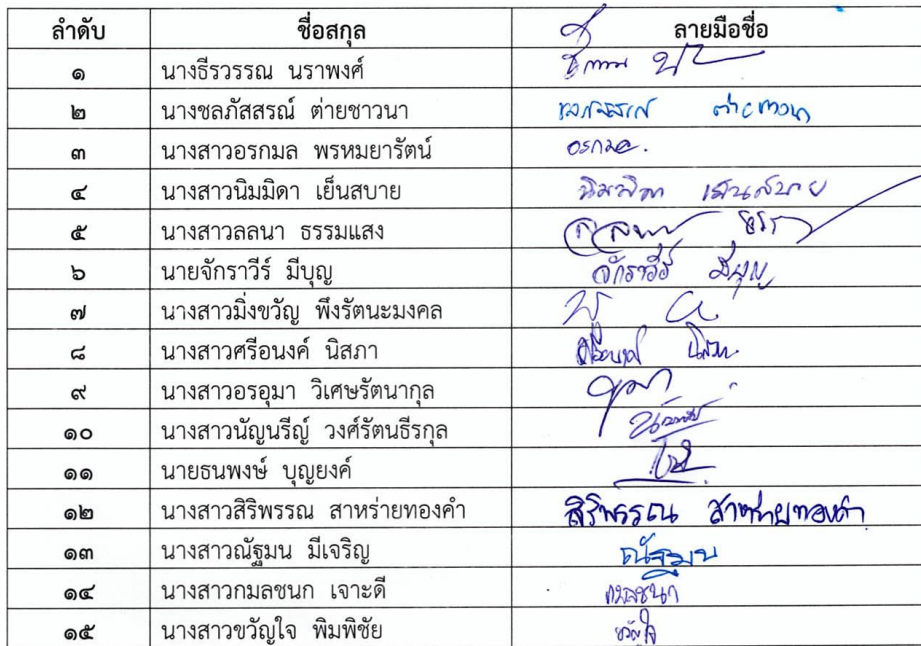 ลำดับ ชื่อสกุล ลายมือชื่อ
๑ นางธีรวรรณ นราพงศ์
๒ นางชลภัสสรณ์ ต่ายชาวนา
๓ นางสาวอรกมล พรหมยารัตน์ อรกมล.
๔ นางสาวนิมมิดา เย็นสบาย นิมมิดา เย็นสบาย
๕ นางสาวลลนา ธรรมแสง
๖ นายจักราวีร์ มีบุญ จักราวีร์ มีบุญ
๗ นางสาวมิ่งขวัญ พึงรัตนะมงคล
๘ นางสาวศรีอนงค์ นิสภา
๙ นางสาวอรอุมา วิเศษรัตนากุล
๑๐ นางสาวนัญนรีญ์ วงศ์รัตนธีรกุล
๑๑ นายธนพงษ์ บุญยงค์
๑๒ นางสาวสิริพรรณ สาหร่ายทองคำ สิริพรรณ สาหร่ายทองคำ
๑๓ นางสาวณัฐมน มีเจริญ ณัฐมน
๑๔ นางสาวกมลชนก เจาะดี
๑๕ นางสาวขวัญใจ พิมพิชัย ขวัญใจ